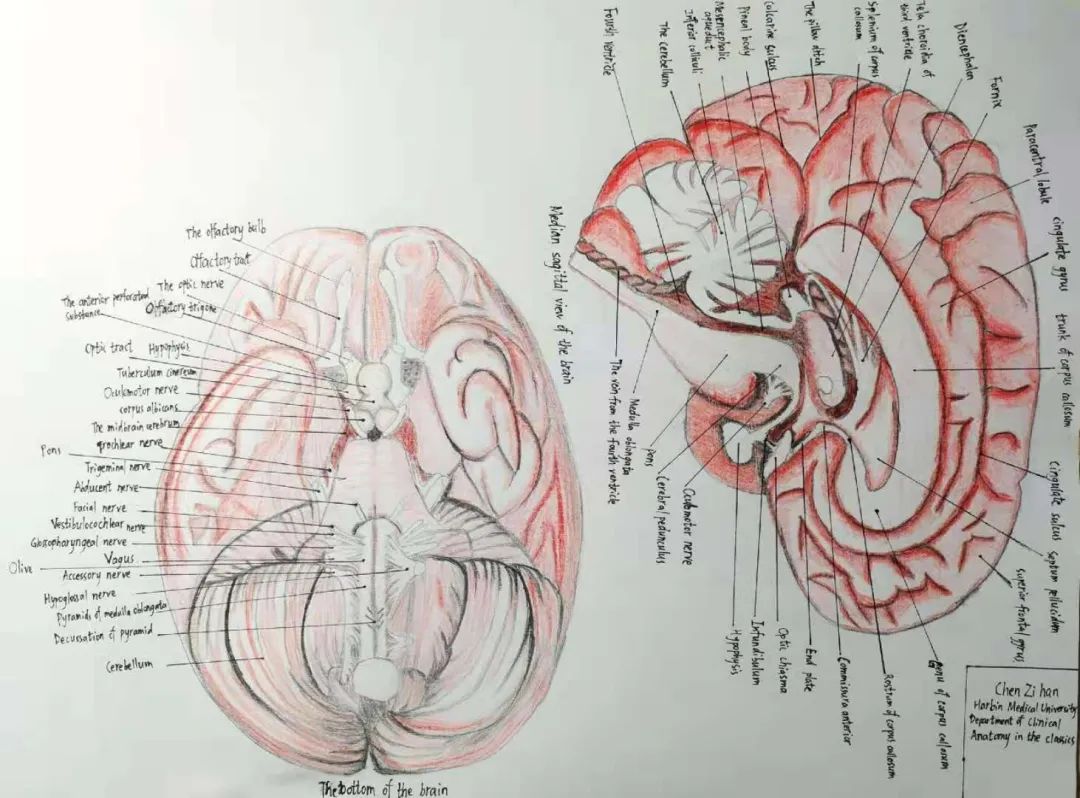 The olfactory bulb
Olfactory tract
The optic nerve
Olfactory trigone
The anterior perforated
substance
Optic tract
Hypophysis
Tuberculum cinereum
Oculomotor nerve
corpus albicans
The midbrain cerebrum
grochlear nerve
Pons
Trigeminal nerve
Adducent nerve
Facial nerve
Vestibulocochlear nerve
Glossopharyngeal nerve
Vagus
Olive
Accessory nerve
Hypoglossal nerve
Pyramids of medulla oblongata
Decussation of pyramid
Cerebellum
The bottom of the brain
Median sagittal view of the brain
Fourth ventricle
The cerebellum
Inferior colliculi
Mesencephalic
aqueduct
Pineal body
Calcarine sulcus
The pillow ditch
Splenium of corpus
callosum
Tela choroidia of
third ventricle
Diencephalon
Fornix
Paracentral lobule
cingulate gyrus
trunk of corpus callosum
Cingulate sulcus
septum pellucidum
superior frontal gyrus
genu of corpus callosum
Rostrum of corpus callosum
Commissura anterior
End plate
Optic chiasma
Infundibulum
Hypophysis
Oculomotor nerve
Cerebral pedunculus
Pons
Medulla oblongata
The vein from the fourth ventricle
Chen Zi han
Harbin Medical University
Department of Clinical
Anatomy in the classics